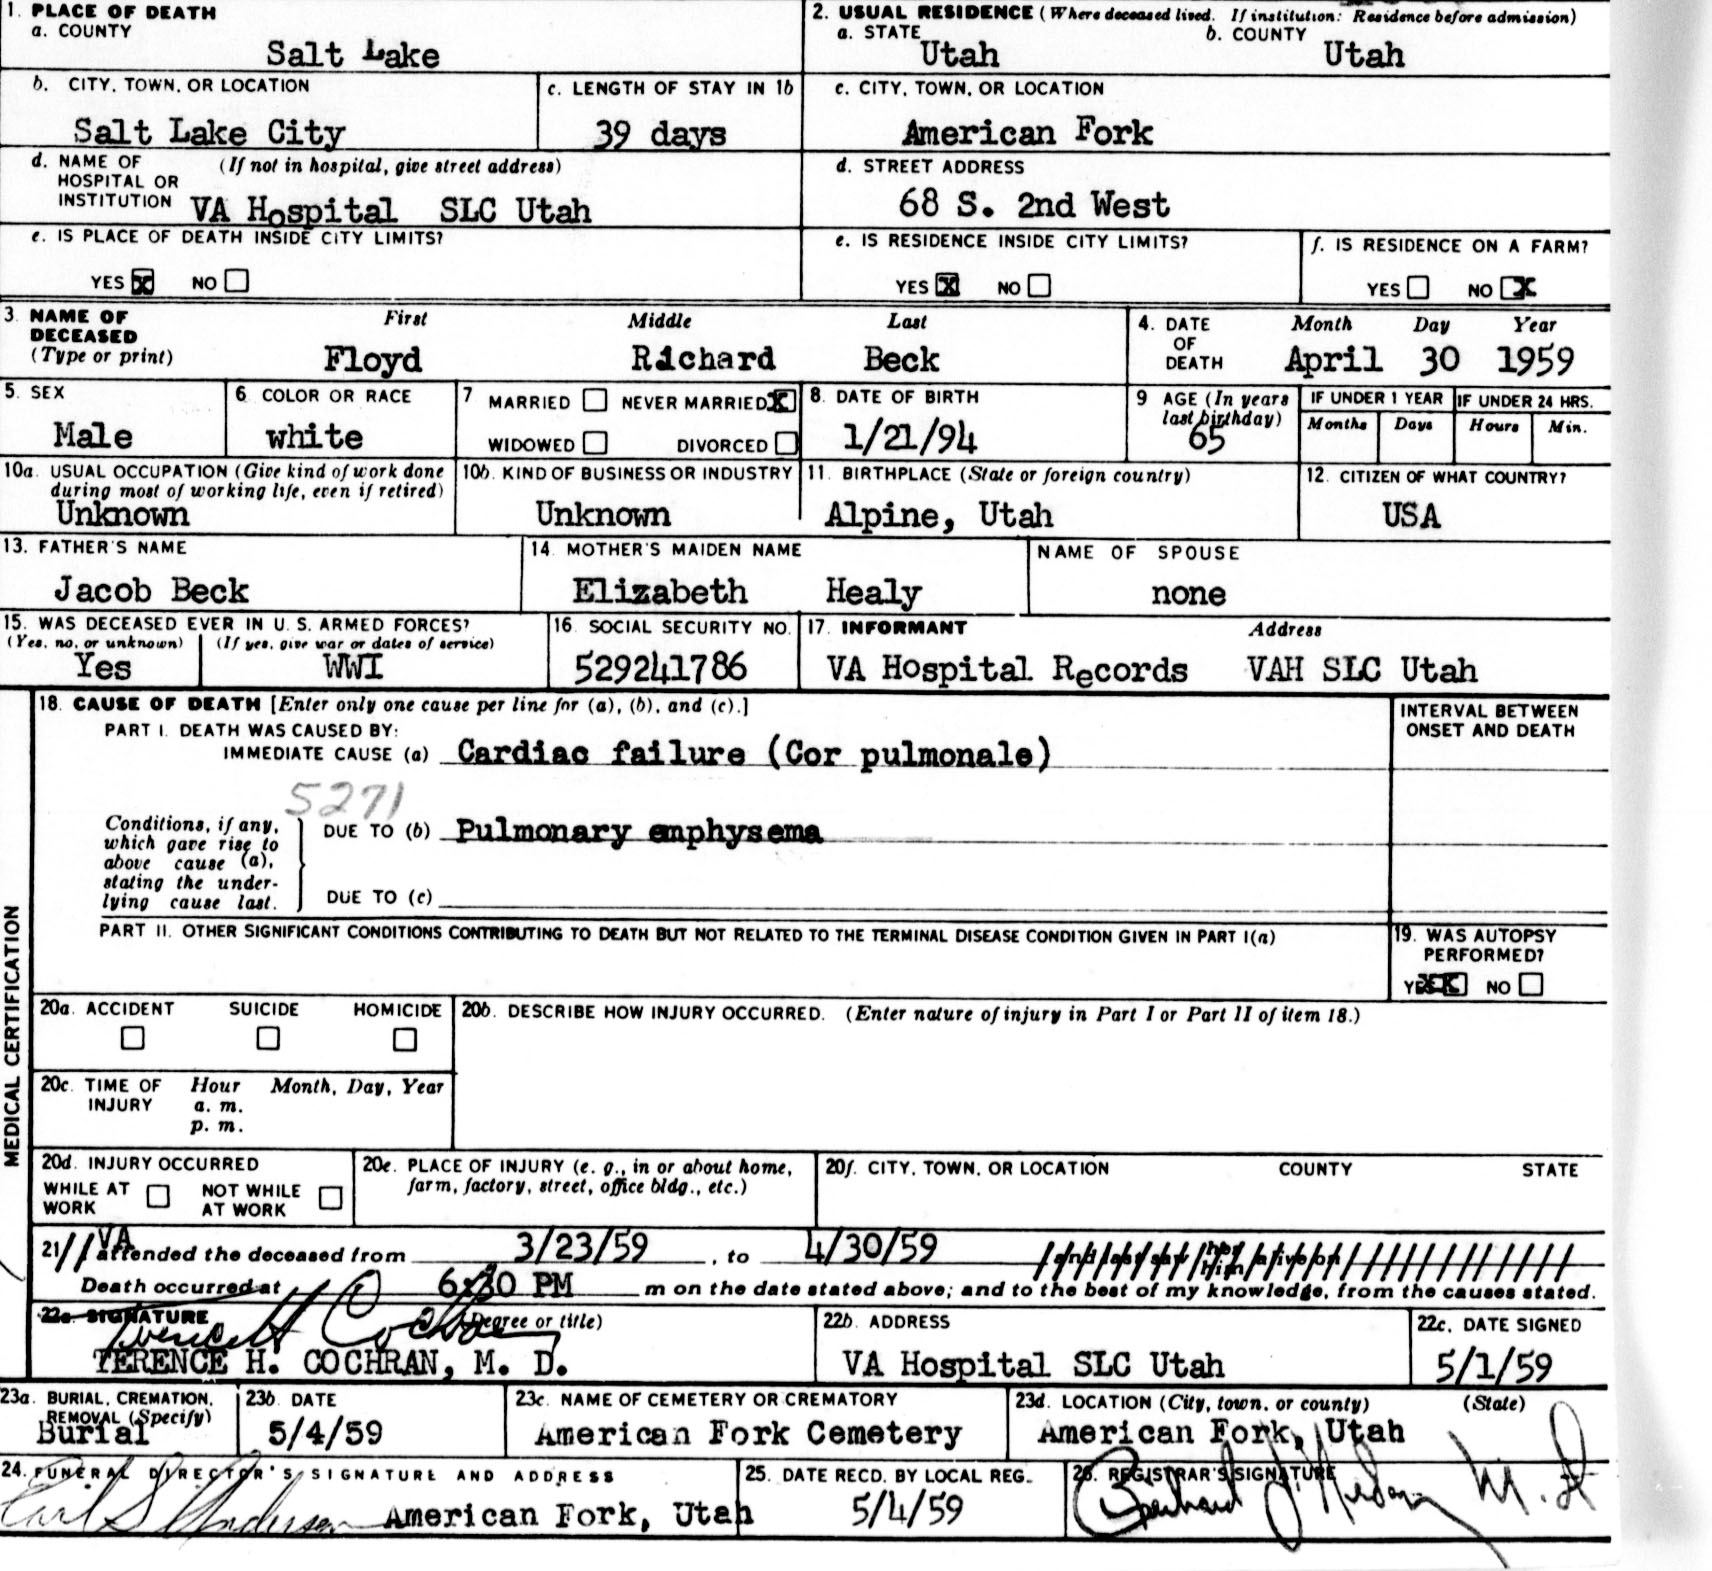 1. PLACE OF DEATH
a. COUNTY
Salt Lake
2. USUAL RESIDENCE (Where deceased lived. If institution: Residence before admission)
a. STATE
Utah
b. COUNTY
Utah
b. CITY, TOWN, OR LOCATION
Salt Lake City
c. LENGTH OF STAY IN 1b
39 days
c. CITY, TOWN, OR LOCATION
American Fork
d. NAME OF (If not in hospital, give street address)
HOSPITAL OR
INSTITUTION VA Hospital SLC Utah
d. STREET ADDRESS
68 S. 2nd West
e. IS PLACE OF DEATH INSIDE CITY LIMITS?
YES X NO
e. IS RESIDENCE INSIDE CITY LIMITS?
YES X NO
f. IS RESIDENCE ON A FARM?
YES NO X
3. NAME OF DECEASED (Type or print)
First Middle Last
Floyd Richard Beck
4. DATE OF DEATH
Month Day Year
April 30 1959
5. SEX
Male
6 COLOR OR RACE
white
7 MARRIED NEVER MARRIED X
WIDOWED DIVORCED
8. DATE OF BIRTH
1/21/94
9 AGE (In years last birthday)
65
IF UNDER 1 YEAR
Months Days
IF UNDER 24 HRS.
Hours Min.
10a. USUAL OCCUPATION (Give kind of work done
during most of working life, even if retired)
Unknown
10b. KIND OF BUSINESS OR INDUSTRY
Unknown
11. BIRTHPLACE (State or foreign country)
Alpine, Utah
12. CITIZEN OF WHAT COUNTRY?
USA
13. FATHER'S NAME
Jacob Beck
14. MOTHER'S MAIDEN NAME
Elizabeth Healy
NAME OF SPOUSE
none
15. WAS DECEASED EVER IN U. S. ARMED FORCES?
(Yes, no, or unknown) (If yes, give war or dates of service)
Yes WWI
16. SOCIAL SECURITY NO.
529241786
17. INFORMANT Address
VA Hospital Records VAH SLC Utah
MEDICAL CERTIFICATION
18. CAUSE OF DEATH [Enter only one cause per line for (a), (b), and (c).]
INTERVAL BETWEEN
ONSET AND DEATH
PART I. DEATH WAS CAUSED BY:
IMMEDIATE CAUSE (a) Cardiac failure (Cor pulmonale)
5271
Conditions, if any,
which gave rise to
above cause (a),
stating the under-
lying cause last.
DUE TO (b) Pulmonary emphysema
DUE TO (c)
PART II. OTHER SIGNIFICANT CONDITIONS CONTRIBUTING TO DEATH BUT NOT RELATED TO THE TERMINAL DISEASE CONDITION GIVEN IN PART I(a)
19. WAS AUTOPSY
PERFORMED?
YES NO
20a. ACCIDENT SUICIDE HOMICIDE
20b. DESCRIBE HOW INJURY OCCURRED. (Enter nature of injury in Part I or Part II of item 18.)
20c. TIME OF INJURY
Hour Month, Day, Year
a. m.
p. m.
20d. INJURY OCCURRED
WHILE AT WORK NOT WHILE AT WORK
20e. PLACE OF INJURY (e. g., in or about home,
farm, factory, street, office bldg., etc.)
20f. CITY, TOWN, OR LOCATION COUNTY STATE
21 VA attended the deceased from 3/23/59, to 4/30/59 and last saw her him alive on
Death occurred at 6:30 PM m on the date stated above; and to the best of my knowledge, from the causes stated.
22a. SIGNATURE (Degree or title)
Terence H Cochran
TERENCE H. COCHRAN, M. D.
22b. ADDRESS
VA Hospital SLC Utah
22c. DATE SIGNED
5/1/59
23a. BURIAL, CREMATION,
REMOVAL (Specify)
Burial
23b. DATE
5/4/59
23c. NAME OF CEMETERY OR CREMATORY
American Fork Cemetery
23d. LOCATION (City, town, or county) (State)
American Fork, Utah
24. FUNERAL DIRECTOR'S SIGNATURE AND ADDRESS
Anderson American Fork, Utah
25. DATE RECD. BY LOCAL REG.
5/4/59
26. REGISTRAR'S SIGNATURE
M.D